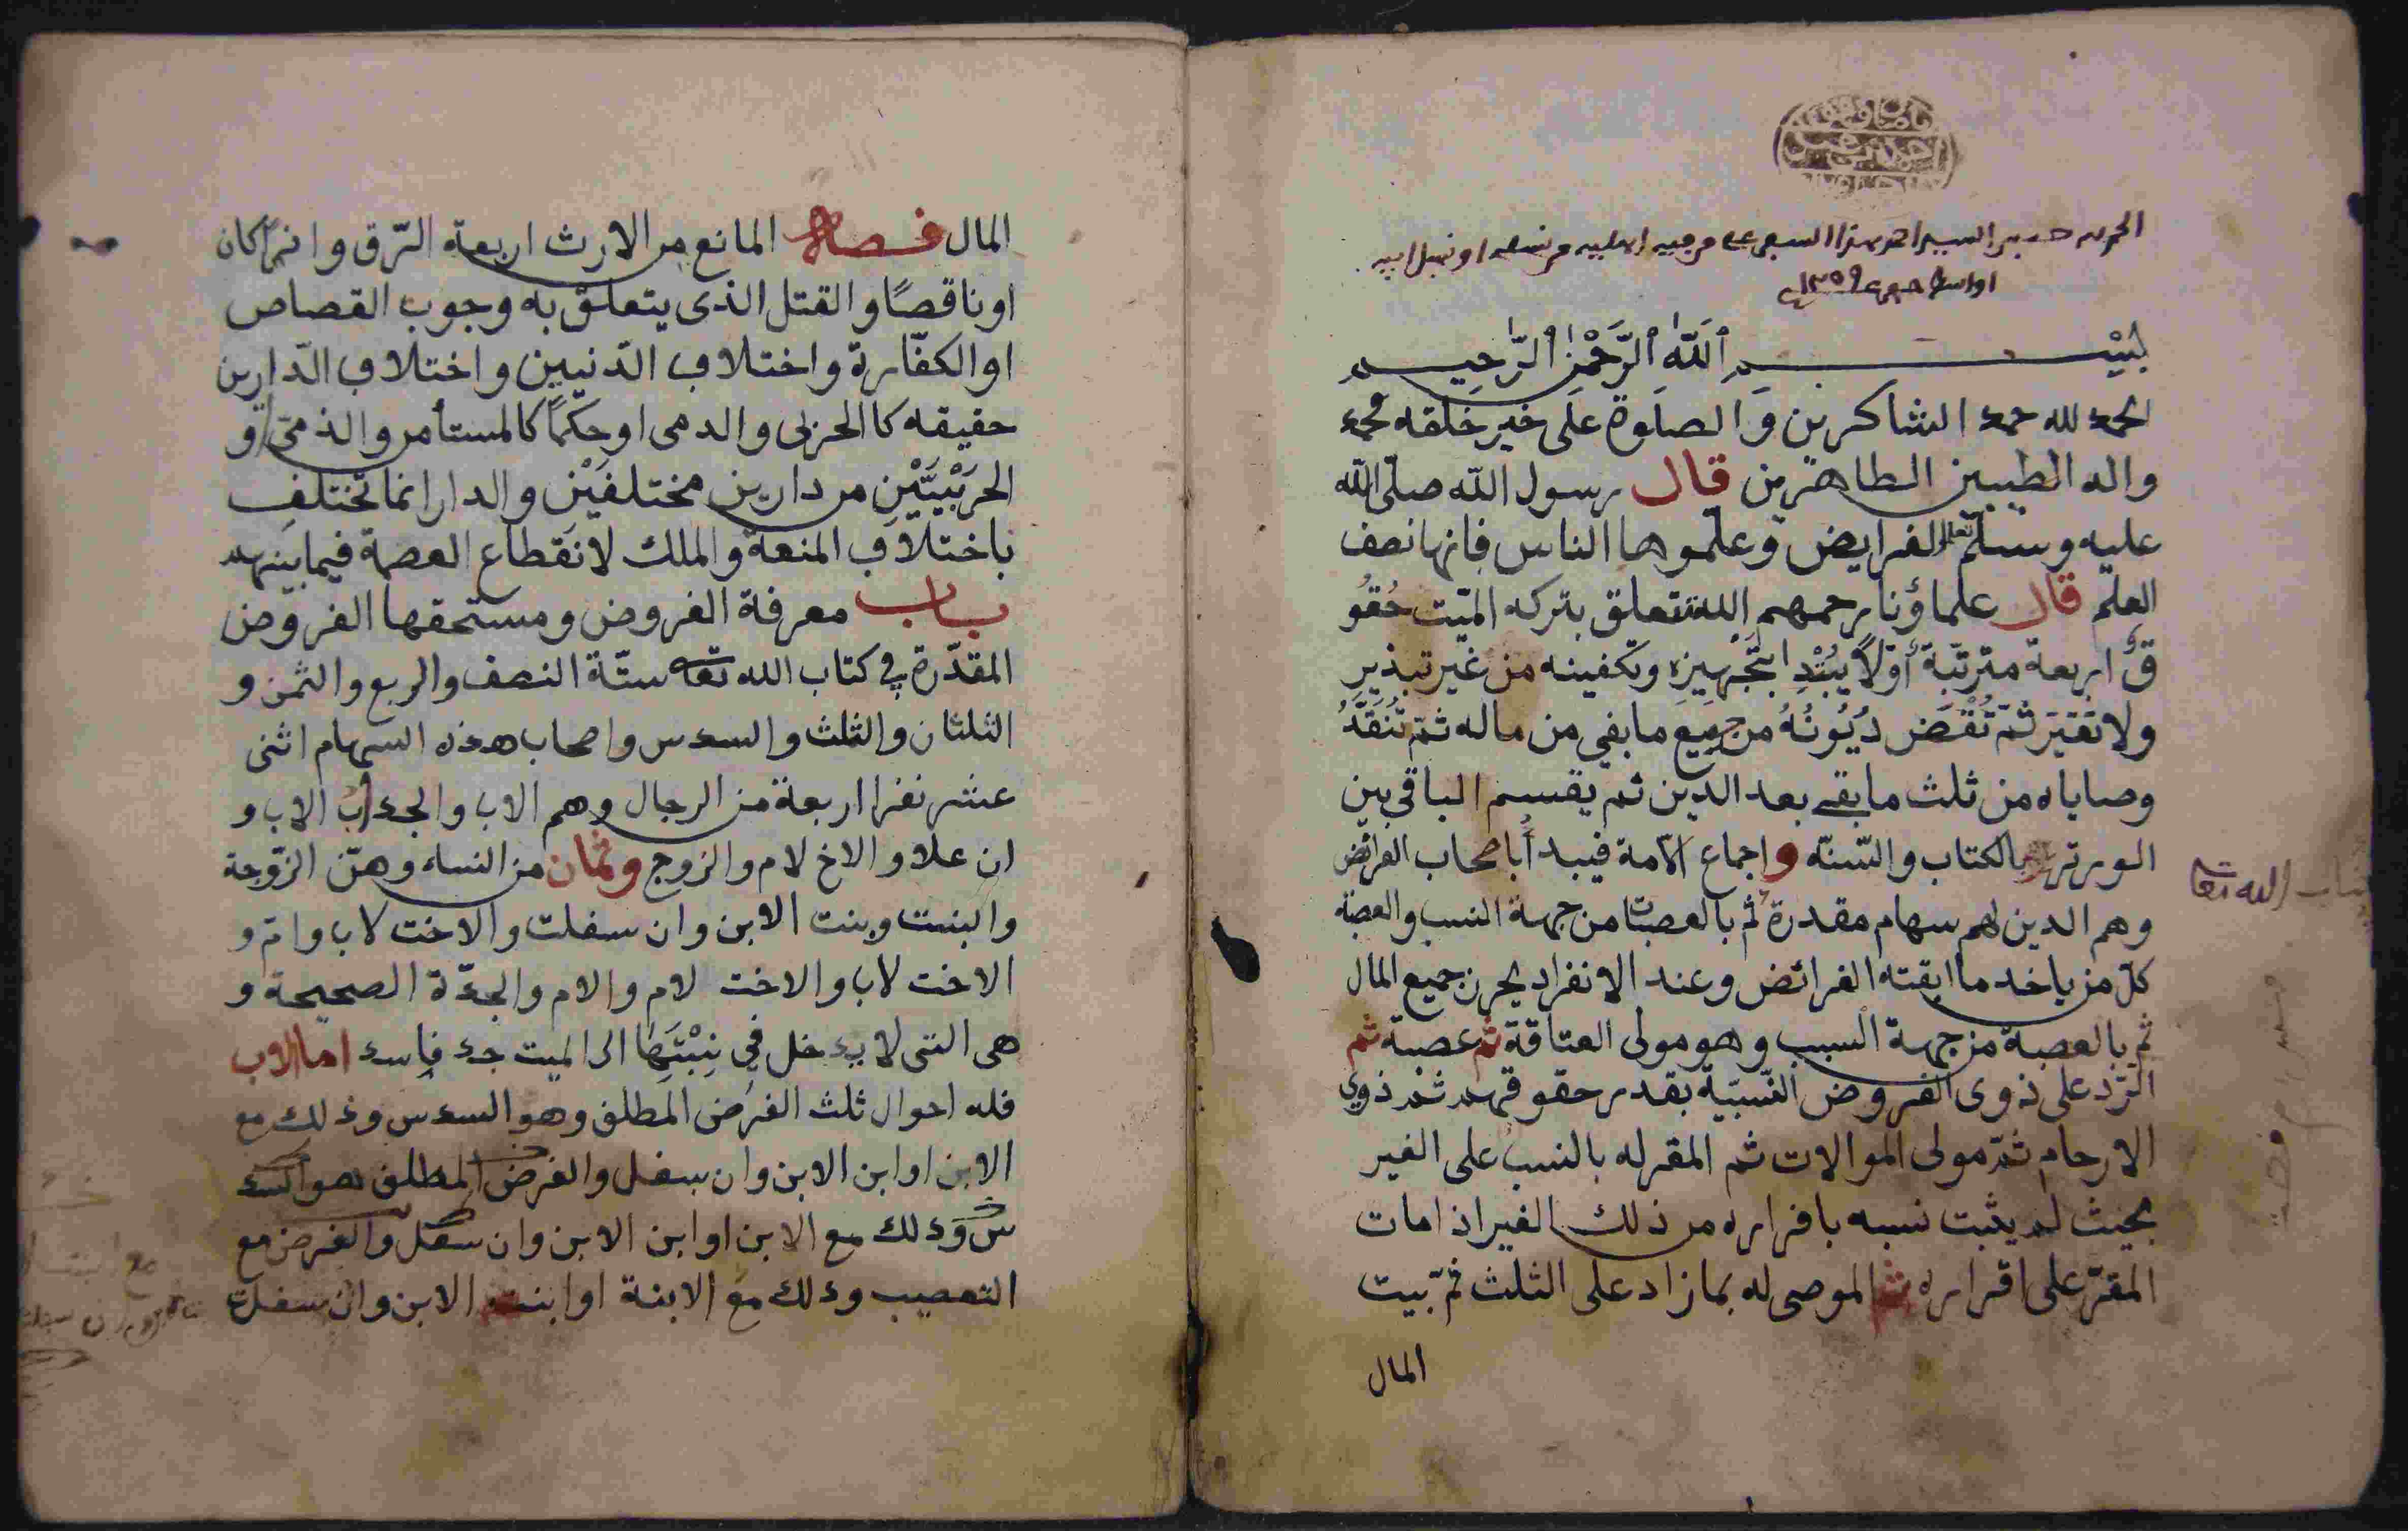 اواسط
بسم الله الرحمن الرحيم
الحمد لله حمد الشاكرين وَالصلوة علَى خير خَلقه محمد
واله الطيبين الطاهرين قال رسول الله صلّى الله
عليه وسلّم تعلموا الفرايض وعلّموها الناس فانها نصف
العلم قال علماؤنا رحمهم الله تتعلق بتركه الميّت حُقُو
قٌ اربعة مترتّبة أوّلاً يُبْتَدِا بتَجْهِيزِه وتكفينه من غير تبذير
ولا تقتير ثمّ تُقْضَ دُيُونُهُ من جميع ما بقي من ماله ثم تُنَفَّذُ
وصاياه من ثلث ما بقى بعد الدين ثم يقسم الباقى بين
الورثة بالكتاب والسّنّه واجماع الامة فيبدأ باصحاب الفرائض
وهم الدين لهم سهام مقدرة ثم بالعصبات من جهة النسب والعصبة
كل من ياخد ما ابقته الفرائض وعند الانفراد يحرز جميع المال
ثم بالعصبة من جهة السبب وهو مولى العتاقة ثم عصبة ثم
الرّد على ذوى الفروض النّسبيّة بقدر حقوقهم ثم ذوي
الارحام ثمّ مولى الموالات ثم المقر له بالنسب على الغير
بحيث لم يثبت نسبه باقراره من ذلك الغير اذا مات
المقرّ على اقراره ثم الموصى له بما زاد على الثلث ثمّ بيت
المال
الله تعا
المال فصل المانع من الارث اربعة الرّق وافرًا كان
او ناقصًا والقتل الذى يتعلق به وجوب القصاص
او الكفّارة واختلاف الدّنيين واختلاف الدّارين
حقيقه كا الحربى والدمى او حكمًا كالمستأمن والذمّى او
الحربَيْيَّيْنِ من دارين مختلفَيْن والدار انما تختلف
باختلاف المنعة والملك لانقطاع العصمة فيما بينهم
باب معرفة الفروض ومستحقها الفروض
المقدّرة في كتاب الله تعه ستّة النصف والربع والثمن و
الثلثان والثلث والسدس واصحاب هذه السهام اثنى
عشر نفرا اربعة من الرجال وهم الاب والجد أب الاب و
ان علا والاخ لام والزوج وثمان من النساء وهنّ الزّوجة
والبنت وبنت الابن وان سفلت والاخت لاب وامّ و
الاخت لاب والاخت لام والام والجدّة الصحيحة و
هى التى لا يدخل في نِبْتَهَا الى الميت جد فاسد اما الاب
فله احوال ثلث الفرض المطلق وهو السدس وذلك مع
الابن او ابن الابن وان سفل والفرض المطلق هو السد
س وذلك مع الابن او ابن الابن وان سفل والفرض مع
التعصيب وذلك مع الابنة او ابنت الابن وان سفلت